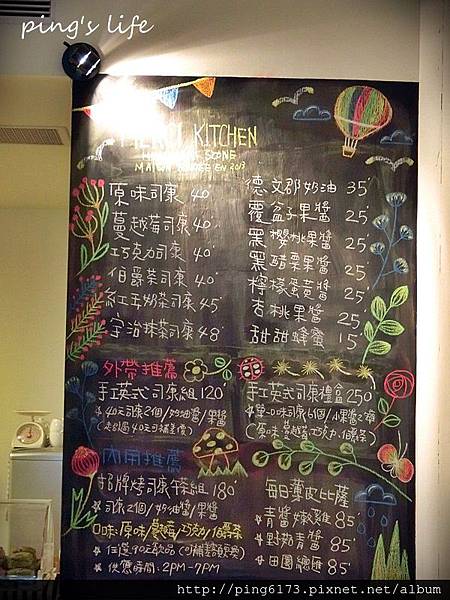 ping's life
KITCHEN
SCONE
原味司康 40
蔓越莓司康 40
巧克力司康 40
伯爵茶司康 40
紅玉奶茶司康 45
宇治抹茶司康 48
德文郡奶油 35
覆盆子果醬 25
黑櫻桃果醬 25
黑醋栗果醬 25
檸檬蛋黃醬 25
杏桃果醬 25
甜甜蜂蜜 15
外帶推薦
手工英式司康組 120
40元司康2個/奶油醬/果醬
手工英式司康禮盒 250
單一口味司康6個/小果醬
(原味、蔓越莓、巧克力、伯爵茶)
內用推薦
招牌烤司康午茶組 180
司康2個/奶油醬/果醬
口味:原味/蔓越莓/巧克力/伯爵茶
任選90元飲品
供應時間:2PM-7PM
每日薄皮比薩
青醬燻雞 85
野菇青醬 85
田園總匯 85
http://ping6173.pixnet.net/album